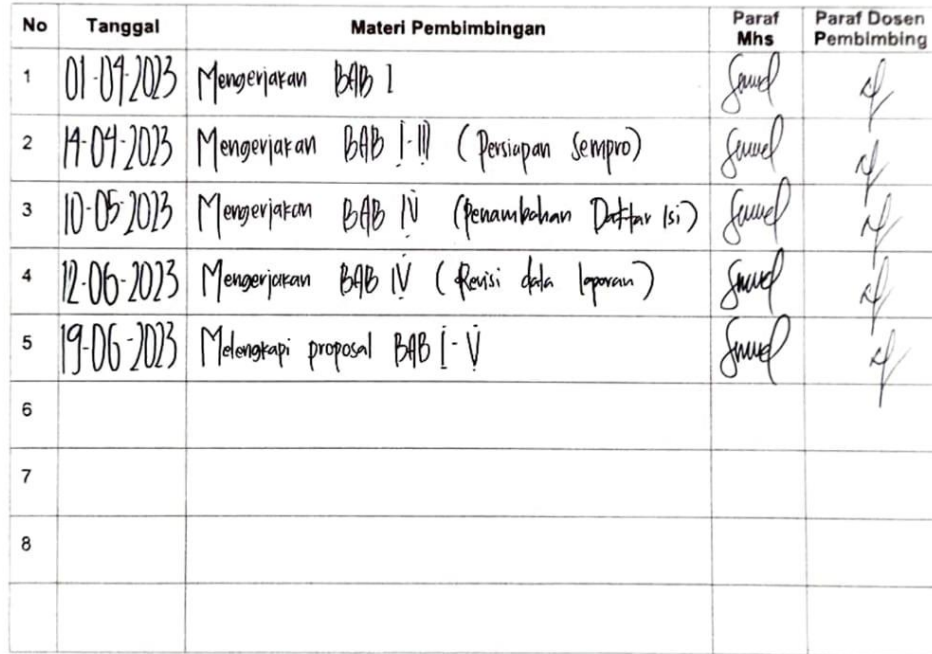 No Tanggal Materi Pembimbingan Paraf Mhs Paraf Dosen Pembimbing
1 01-04-2023 Mengerjakan BAB I
2 14-04-2023 Mengerjakan BAB I-III (Persiapan Sempro)
3 10-05-2023 Mengerjakan BAB IV (Penambahan Daftar Isi)
4 12-06-2023 Mengerjakan BAB IV (Revisi data laporan)
5 19-06-2023 Melengkapi proposal BAB I-V
6
7
8